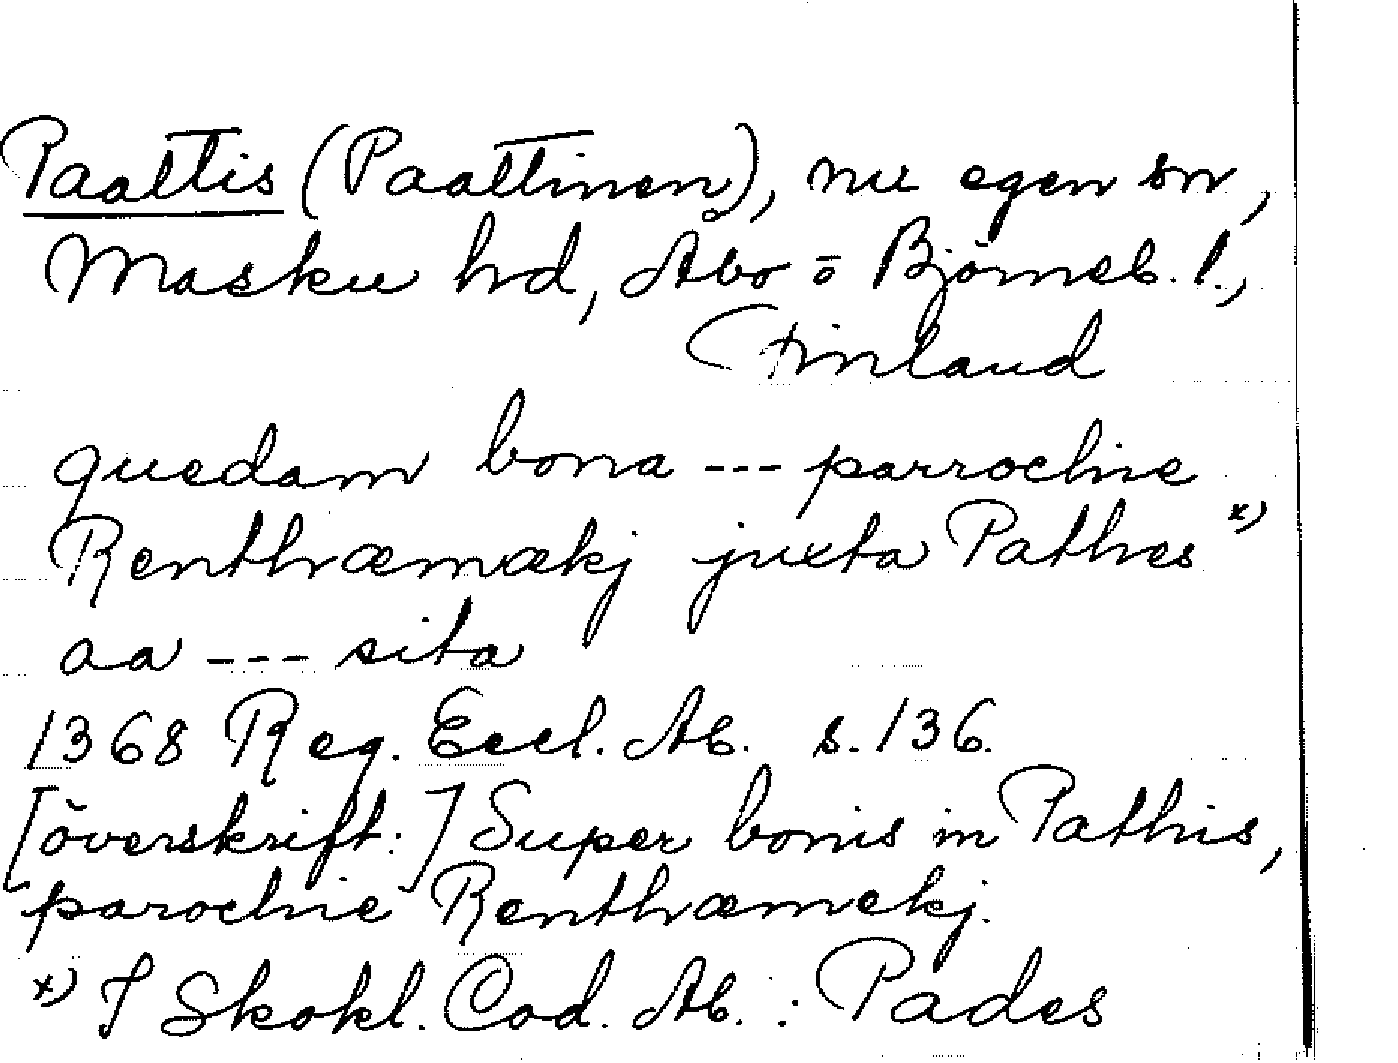 Paattis (Paattinen), nu egen sn,
Masku hd, Åbo ō Björneb. l.,
Finland
quedam bona --- parrochie
Renthæmækj juxta Pathes *)
aa --- sita
1368 Reg. Eccl. Ab. s. 136.
[överskrift:] Super bonis in Pathis,
parochie Renthæmekj.
*) I Skokl. Cod. Ab. : Pades